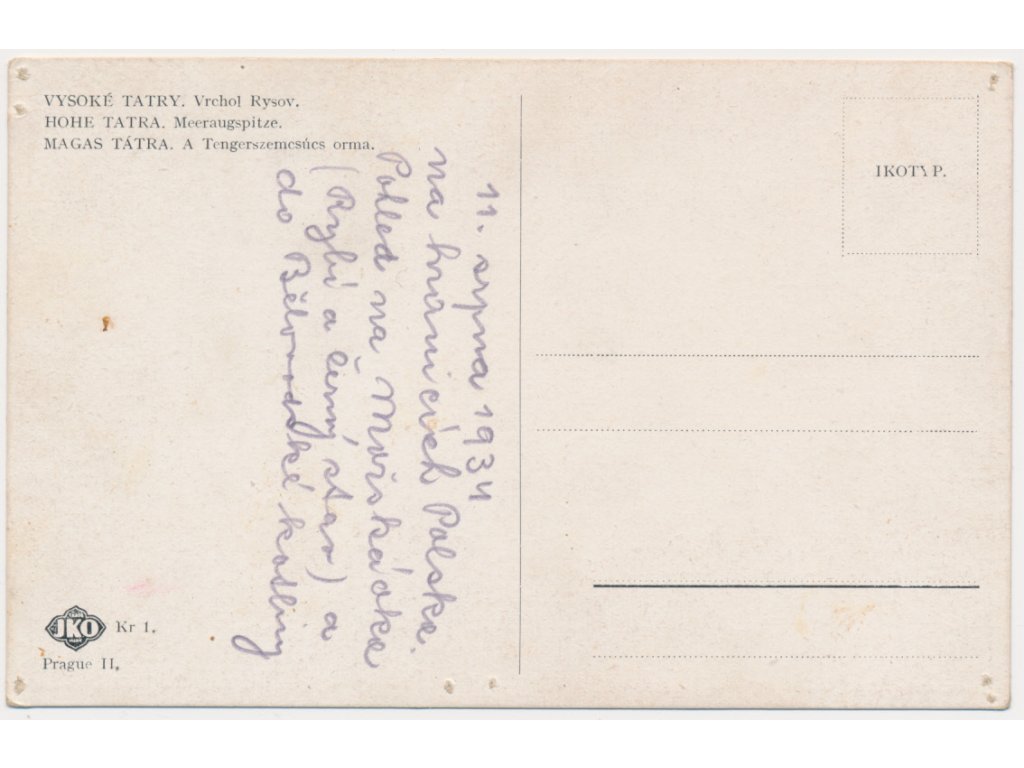 VYSOKÉ TATRY. Vrchol Rysov.
HOHE TATRA. Meeraugspitze.
MAGAS TÁTRA. A Tengerszemcsúcs orma.
11. srpna 1934
na hranicích Polska.
Pohled na Mořská oka
(Rybí a černý stav) a
do Bělovodské kotliny
IKOTYP.
JKO
Kr 1.
Prague II.